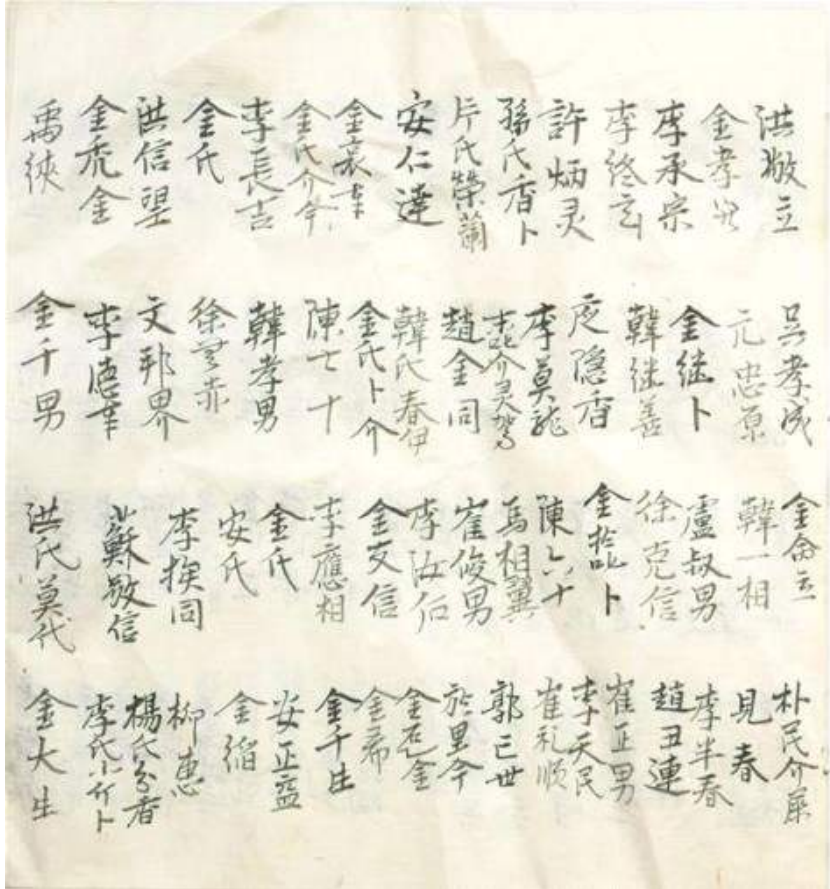 洪敬立
金孝公
李承宗
李終玄
許炳灵
孫氏香卜
片氏榮蘭
安仁達
金哀幸
金氏介今
李長吉
金氏
洪信望
金虎金
禹俠
吴孝成
元忠原
金继卜
韓继善
隐香
李莫龍
介灵駕
趙金同
韓氏春伊
金氏卜介
陳七十
韓孝男
徐䒭赤
文邦界
李德幸
金千男
金命立
韓一相
盧叔男
徐克信
金於叱卜
陳六十
馬相翼
崔俊男
李汝佑
金友信
李應相
金氏
安氏
李挨同
蘇敬信
洪氏莫代
朴民介
見春
李半春
趙丑連
崔正男
李天民
崔礼順
郭己世
於里今
金邑金
金希
金千生
安正益
金縚
柳惠
楊氏分香
李氏小斤卜
金大生